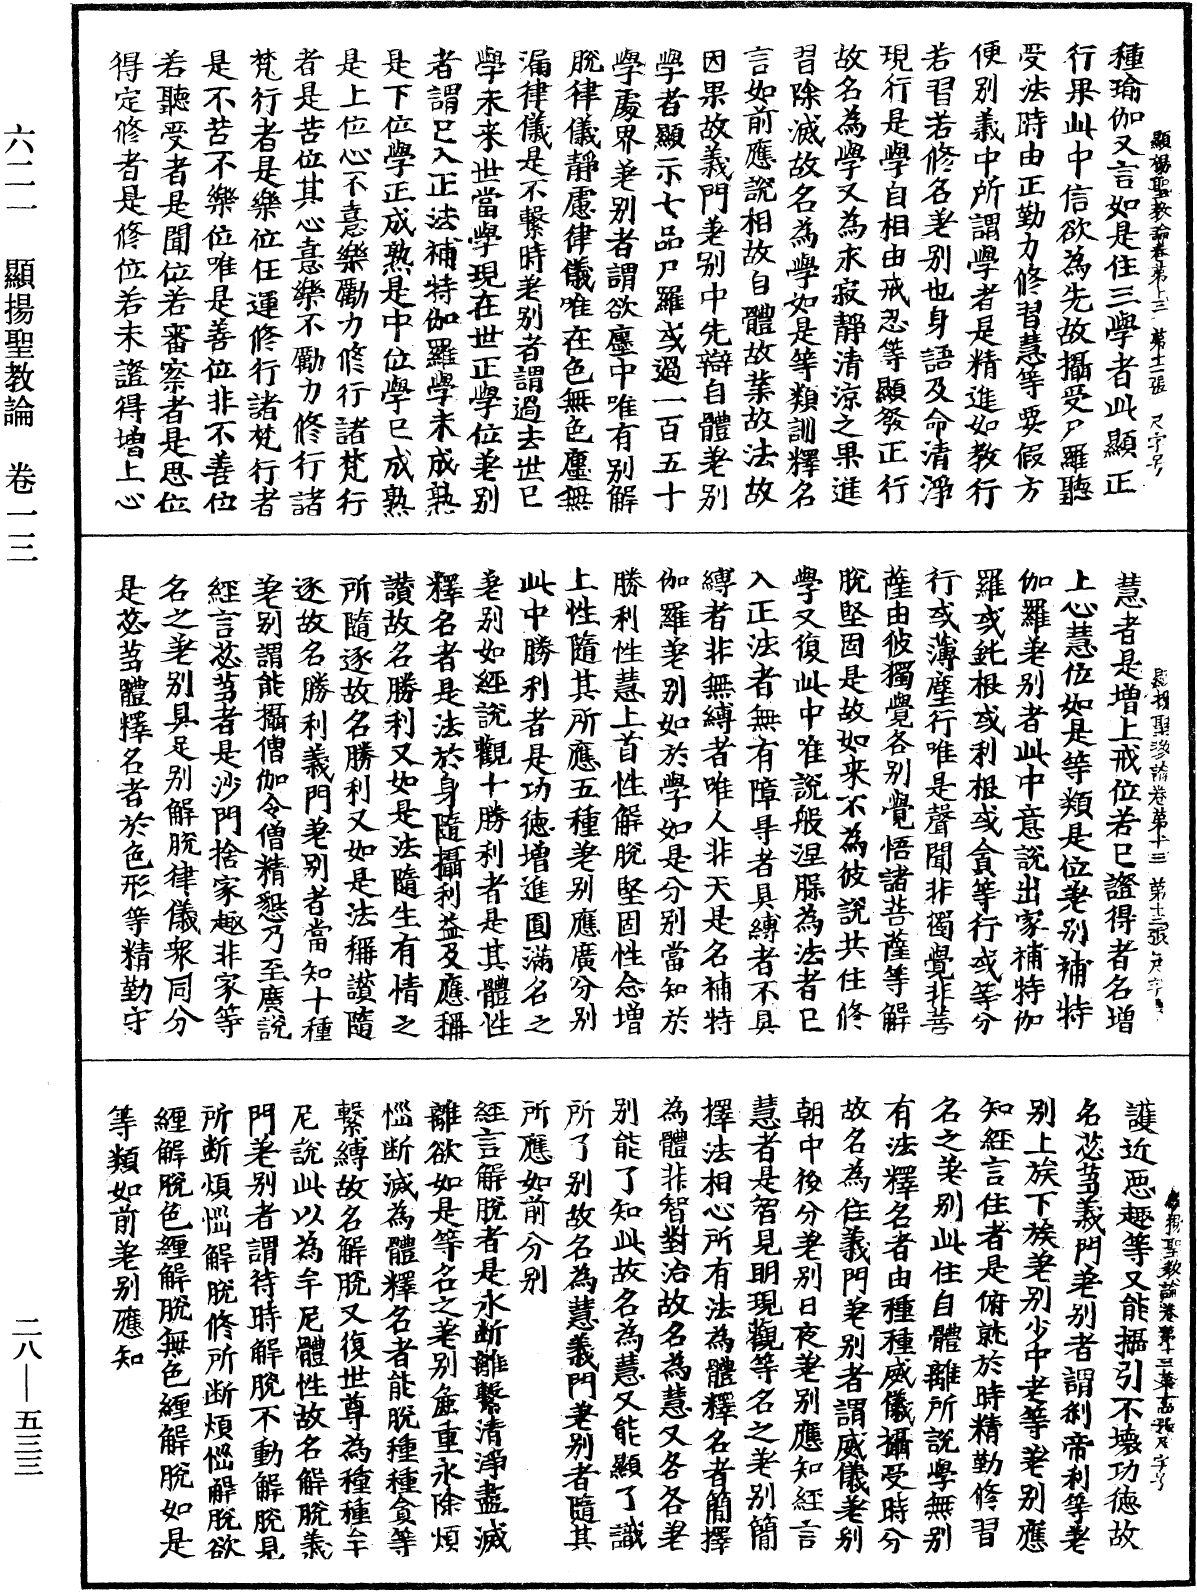 六二一　顯揚聖教論　卷一三
二八—五三三
顯揚聖教論卷第十三　第十二張　尺字号
種瑜伽又言如是住三學者此顯正
行果此中信欲為先故攝受尸羅聽
受法時由正勤力修習慧等要假方
便別義中所謂學者是精進如教行
若習若修名差別也身語及命清淨
現行是學自相由戒忍等顯發正行
故名為學又為求寂靜清涼之果進
習除滅故名為學如是等類訓釋名
言如前應說相故自體故業故法故
因果故義門差別中先辯自體差別
學者顯示七品尸羅或過一百五十
學處界差別者謂欲塵中唯有別解
脫律儀靜慮律儀唯在色無色塵無
漏律儀是不繫時差別者謂過去世已
學未来世當學現在世正學位差別
者謂已入正法補特伽羅學未成熟
是下位學正成熟是中位學已成熟
是上位心不憙樂勵力修行諸梵行
者是苦位其心憙樂不勵力修行諸
梵行者是樂位任運修行諸梵行者
是不苦不樂位唯是善位非不善位
若聽受者是聞位若審察者是思位
得定修者是修位若未證得增上心
顯揚聖教論卷第十三　第十三張
慧者是增上戒位若已證得者名增
上心慧位如是等類是位差別補特
伽羅差別者此中意說出家補特伽
羅或鈍根或利根或貪等行或等分
行或薄塵行唯是聲聞非獨覺非菩
薩由彼獨覺各別覺悟諸菩薩等解
脫堅固是故如来不為彼說共住修
學又復此中唯說般涅槃為法者已
入正法者無有障㝵者具縛者不具
縛者非無縛者唯人非天是名補特
伽羅差別如於學如是分別當知於
勝利性慧上首性解脫堅固性念增
上性隨其所應五種差別應廣分別
此中勝利者是功德增進圓滿名之
差別如經說觀十勝利者是其體性
釋名者是法於身隨攝利益及應稱
讃故名勝利又如是法隨生有情之
所隨逐故名勝利又如是法稱讃隨
逐故名勝利義門差別者當知十種
差別謂能攝僧伽令僧精懇乃至廣說
經言苾芻者是沙門捨家趣非家等
名之差別具足別解脫律儀衆同分
是苾芻體釋名者於色形等精勤守
顯揚聖教論卷第十三　第十四張　尺字号
護近惡趣等又能攝引不壞功德故
名苾芻義門差別者謂刹帝利等差
別上族下族差別少中老等差別應
知經言住者是俯就於時精勤修習
名之差別此住自體離所說學無別
有法釋名者由種種威儀攝受時分
故名為住義門差別者謂威儀差別
朝中後分差別日夜差別應知經言
慧者是智見明現觀等名之差別簡
擇法相心所有法為體釋名者簡擇
為體非智對治故名為慧又各各差
別能了知此故名為慧又能顯了識
所了別故名為慧義門差別者隨其
所應如前分別
經言解脫者是永断離繫清淨盡滅
離欲如是等名之差別麁重永除煩
惱断滅為體釋名者能脫種種貪等
繫縛故名解脫又復世尊為種種牟
尼說此以為牟尼體性故名解脫義
門差別者謂待時解脫不動解脫見
所断煩惱解脫修所断煩惱解脫欲
纏解脫色纏解脫無色纏解脫如是
等類如前差別應知